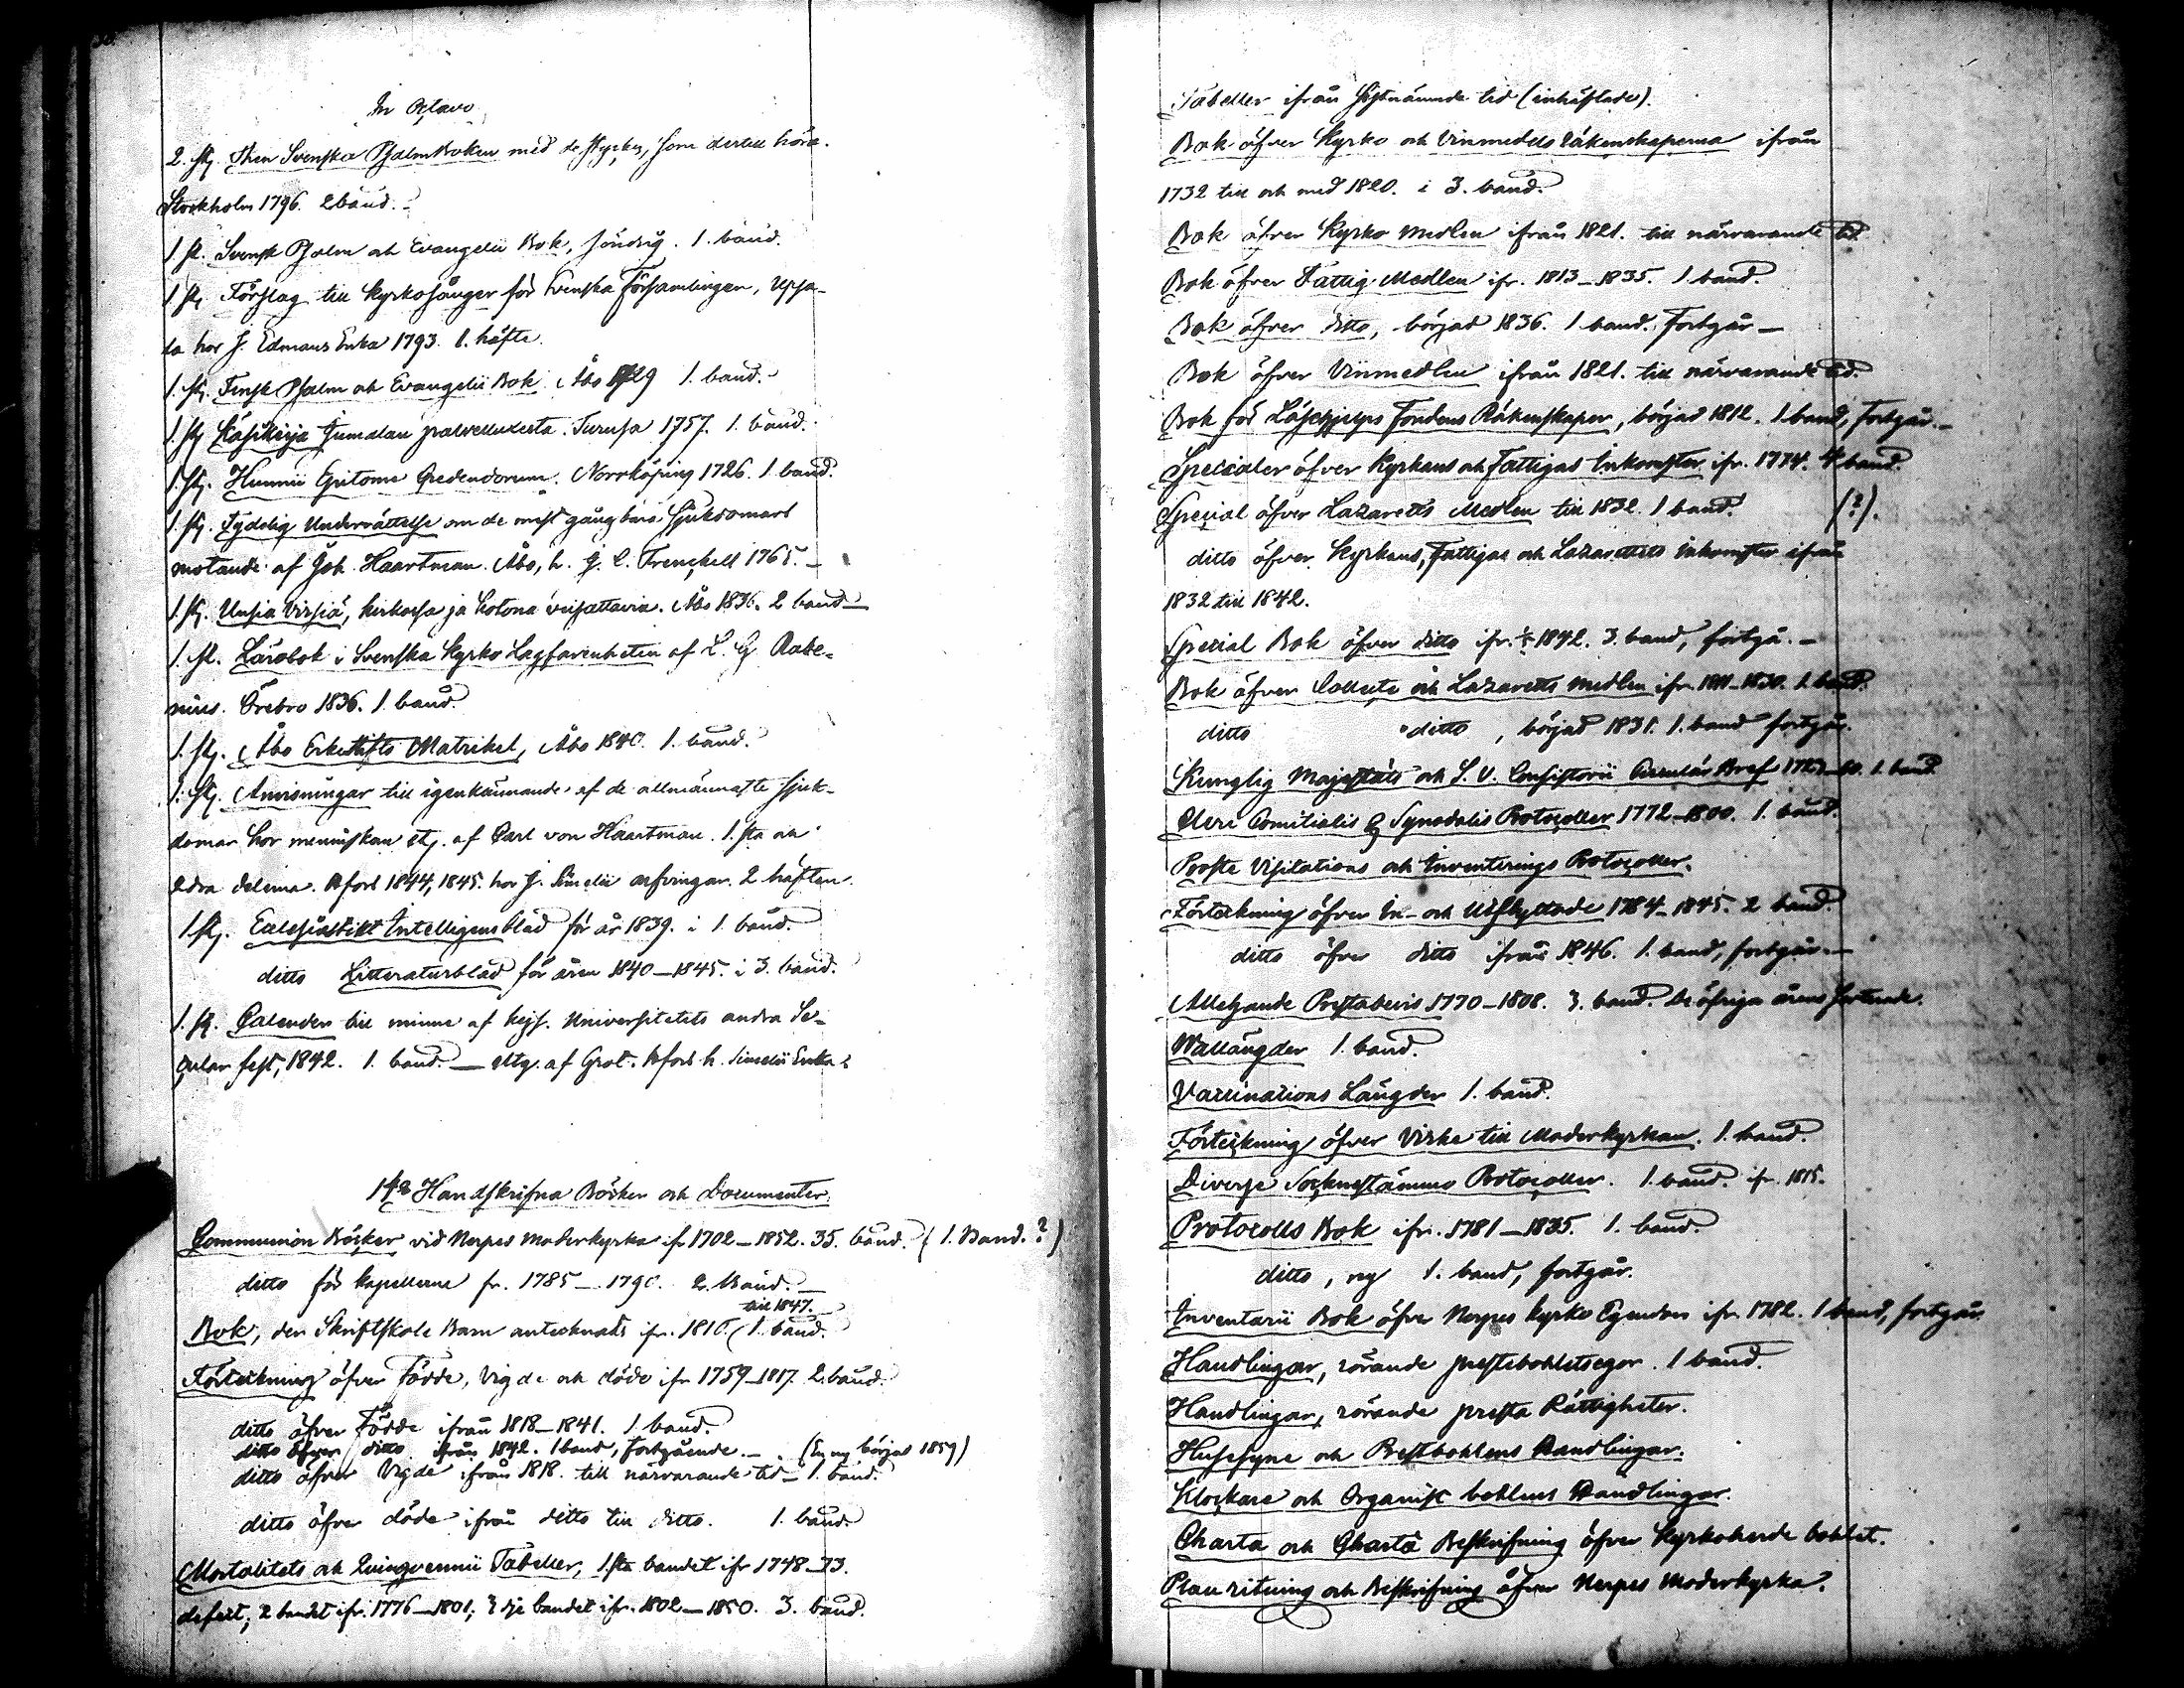 In Octavo
2. st. Then Svenska PsalmBoken med de stycker, som dertill höra.
Stockholm 1796. 2 band.
1 st. Svensk Psalm och Evangelii Bok, söndrig. 1. band.
1 st. Förslag till Kyrkosånger för Svenska Församlingen, Upsa-
la hos J. Edmans Enka 1793. 1. häfte.
1. st. Finsk Psalm och Evangelii Bok. Åbo 1729 1. band.
1. st. Käsikirja Jumalan palvelluxesta. Turusa 1757. 1. band.
1. st. Hunnii Epitome Credendorum. Norrköping 1726. 1. band.
1. st. Tydelig Underrättelse om de mest gångbara Sjukdomars
motande af Joh. Haartman. Åbo, h. J. C. Frenckell 1765.
1. st. Uusia Virsiä, kirkossa ja kotona veisattavia. Åbo 1836. 2 band
1. st. Lärobok i Svenska Kyrko Lagfarenheten af L. G. Rabe-
nius. Örebro 1836. 1. band.
1. st. Åbo Erkestifts Matrikel, Åbo 1840. 1. band.
1. st. Anvisningar till igenkännande af de allmännaste sjuk-
domar hos menniskan etc. af Carl von Haartman. 1. sta och
2dra delarna. H:fors 1844, 1845. hos J. Simelii arfvingar. 2 häften.
1 st. Ecclesiastikt Intelligensblad för år 1839. i 1. band.
ditto Litteraturblad för åren 1840–1845. i 3. band.
1. st. Calender till minne af Kejs. Universitetets andra Se-
cular fest, 1842. 1. band. — utg. af Grot. H:fors h. Simelii Enka.
14o Handskrifna Böcker och Documenter
Communion Böcker vid Nerpes Moderkyrka ifr 1702–1852. 35. band. (1. Band.?)
ditto för kapellerna fr. 1785–1790. 2. Band.
till 1847.
Bok, der Skriftskole Barn antecknats ifr. 1816. (1. band.
Förteckning öfver Födde, Vigde och döde ifr 1759–1817. 2. band.
ditto öfver Födde ifrån 1818–1841. 1 band.
ditto öfver ditto ifrån 1842. 1 band, fortgående. (En ny börjad 1859)
ditto öfver Vigde ifrån 1818. till närvarande tid – 1. band.
ditto öfver döde ifrån ditto till ditto. 1. band.
Mortalitets och Quinquennii Tabeller, 1. sta bandet ifr 1748–73.
defect; 2 bandet ifr. 1776–1801; 3 dje bandet ifr. 1802–1850. 3. band.
Tabeller ifrån sistnämnde tid (inhäftade).
Bok öfver Kyrko och Vinmedels räkenskaperna ifrån
1732 till och med 1820. i 3. band.
Bok öfver Kyrko medlen ifrån 1821. till närvarande tid.
Bok öfver Fattig Medlen ifr. 1813–1835. 1 band.
Bok öfver ditto, börjad 1836. 1 band. Fortgår –
Bok öfver Vinmedlen ifrån 1821. till närvarande tid.
Bok för Låsehjelps Fondens Räkenskaper, börjad 1812. 1 band, fortgår.
Specialer öfver Kyrkans och Fattigas Inkomster ifr. 1774. 4 band.
Special öfver Lazaretts Medlen till 1832. 1 band. (?).
ditto öfver Kyrkans, Fattigas och Lazarettets inkomster ifrån
1832 till 1842.
Special Bok öfver ditto ifr. 1842. 3. band, fortgå. –
Bok öfver Collecte och Lazaretts medlen ifr. 1811–1830. 1. band.
ditto ditto, börjad 1831. 1. band fortgår.
Kunglig Majestäts och S. V. Consistorii Circulär Bref 1. band
Cleri Comitialis & Synodalis Protocoller 1772–1800. 1. band.
Prosta Visitations och Inventerings Protocoller.
Förteckning öfver In- och Utflyttade 1784–1845. 2 band.
ditto öfver ditto ifrån 1846. 1. band, fortgår. –
Allehande Prestabevis 1770–1808. 3. band. De öfriga årens
Wallängder 1. band.
Vaccinations Längder 1. band.
Förteckning öfver Virke till Moderkyrkan. 1. band.
Diverse Socknestämmo Protocoller. 1. band. ifr. 1815.
Protocolls Bok ifr. 1781–1835. 1. band.
ditto, ny 1. band, fortgår.
Inventarii Bok öfver Nerpes kyrko Egendom ifr. 1782. 1 band, fortgår
Handlingar, rörande prestebohletsegor. 1 band.
Handlingar, rörande presta Rättigheter.
Husesyne och Prestbohlens Handlingar.
Klockare och Organist bohlens Handlingar.
Charta och Charta Beskrifning öfver Kyrkoherde bohlet.
Plan ritning och Beskrifning öfver Nerpes Moderkyrka.